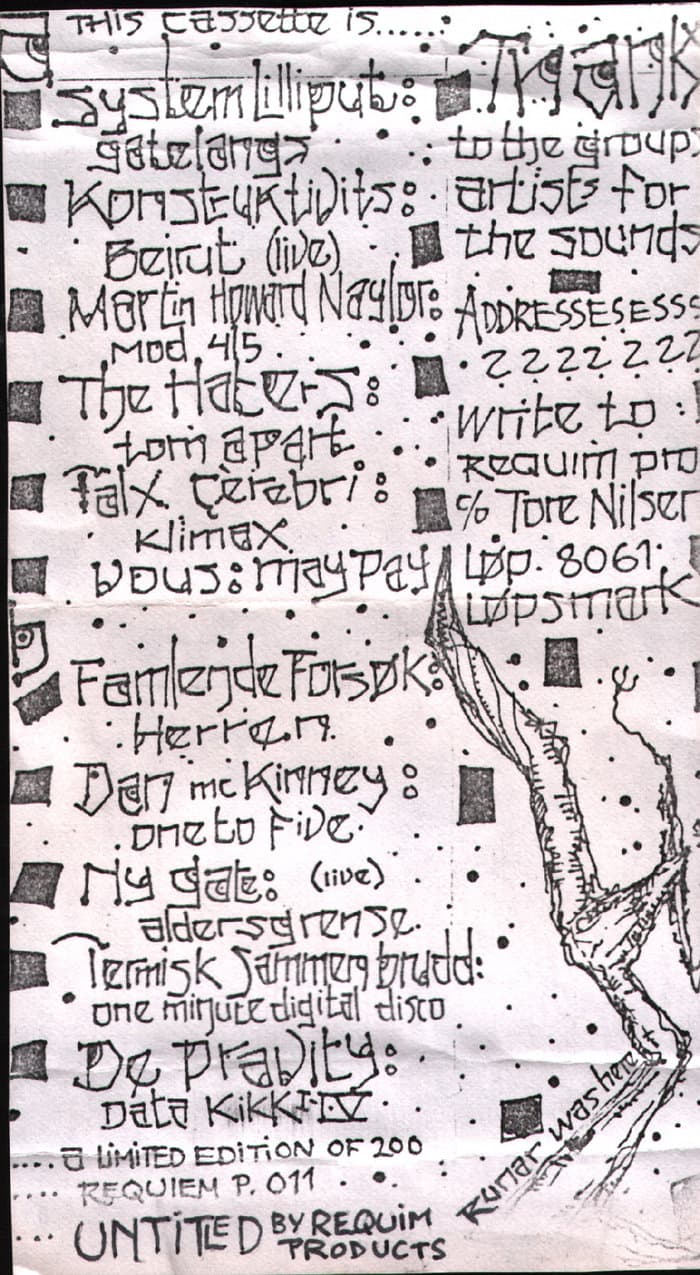 THIS CASSETTE IS......
System Lilliput:
gatelangs
Konstruktivits:
Beirut (live)
Martin Howard Naylor:
Mod 4/5
The Haters:
torn apart
Falx Çerebri:
Klimax
Vous: may pay
Famlende Forsøk:
Herren
Dan mcKinney:
one to Five
Ny gate: (live)
aldersgrense
Termisk Sammenbrudd:
one minute digital disco
De Pravity:
Data KikkI-IV
.... a LIMITED EDITION OF 200
.... REQUIEM P. 011
... UNTITLED BY REQUIM
PRODUCTS
Thank
to the group
artists for
the sounds
ADDRESSESESSS
? ? ? ? ? ? ?
write to :
REQUIM PRO
c/o Tore Nilsen
Løp. 8061
Løpsmark
Runar was here!!